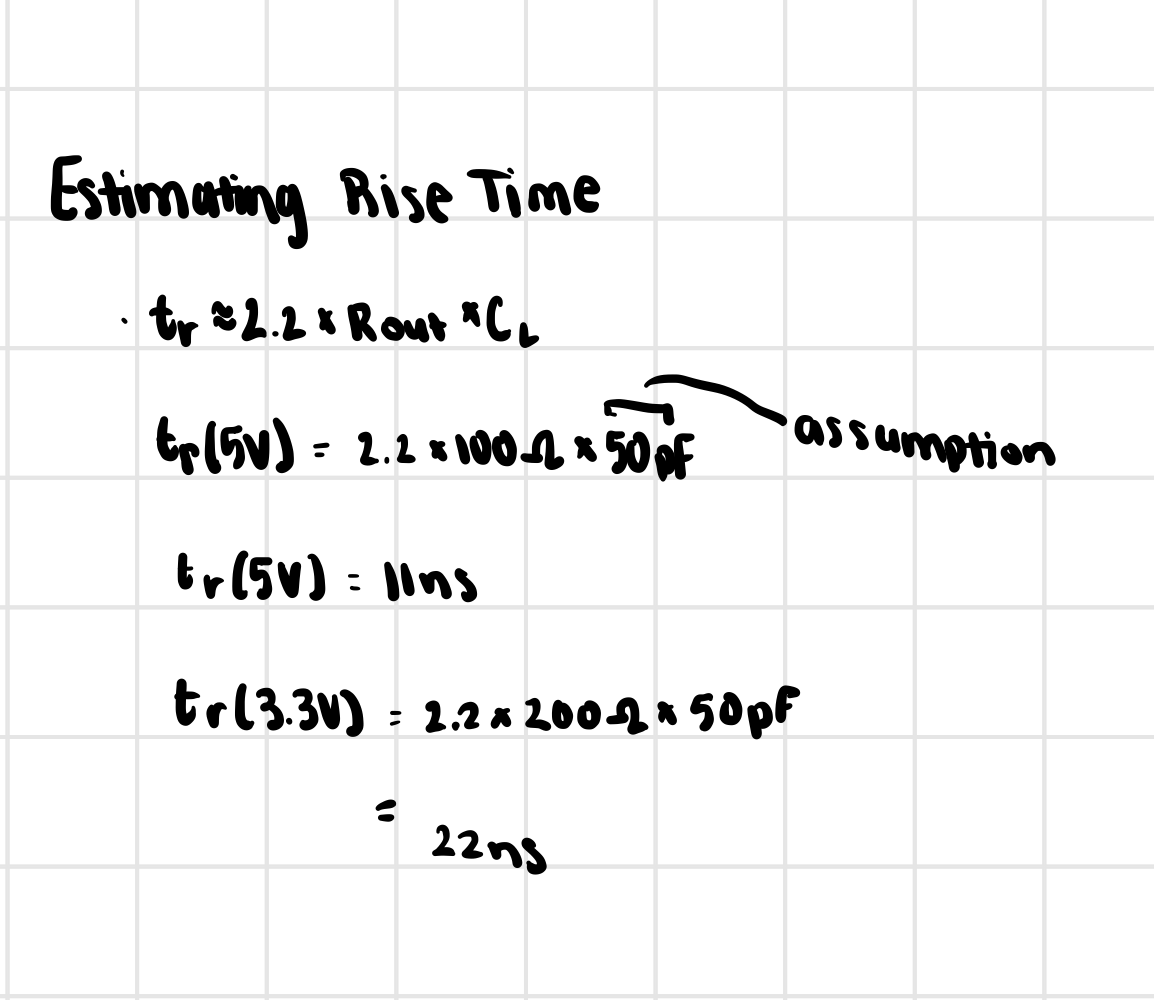 Estimating Rise Time
· tr ≈ 2.2 * Rout * CL
tr(5V) = 2.2 * 100Ω * 50pF
assumption
tr(5V) = 11ns
tr(3.3V) = 2.2 * 200Ω * 50pF
=
22ns